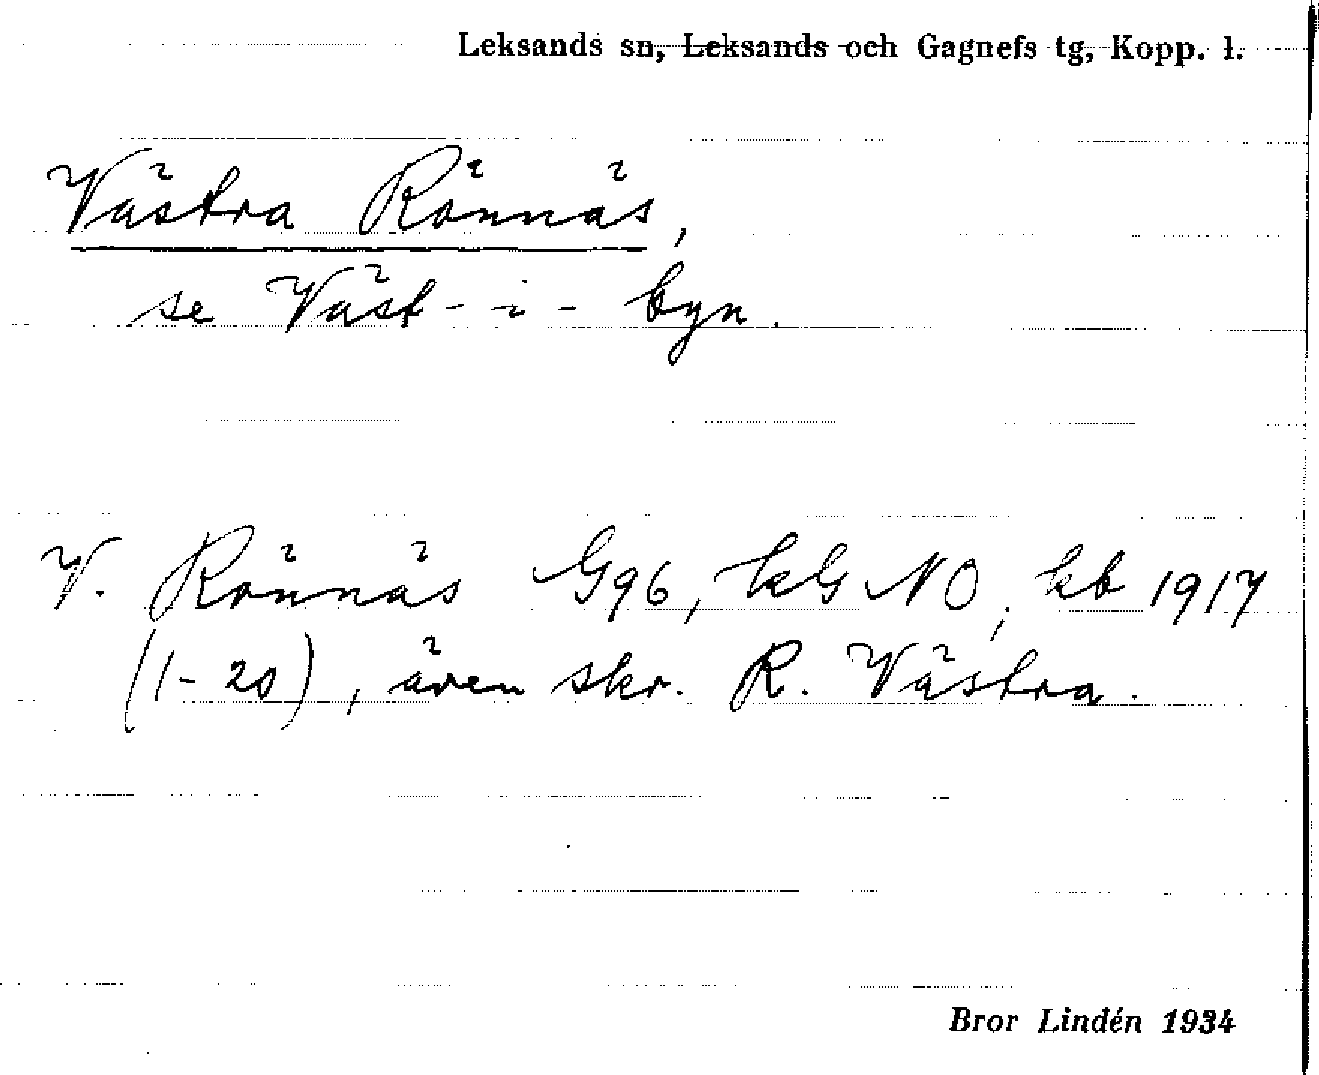 Leksands sn, Leksands och Gagnefs tg, Kopp. l.
Västra Rönnäs,
se Väst-i-byn.
V. Rönnäs G96, kG NO, kb 1917
(1-20), även skr. R. Västra.
Bror Lindén 1934